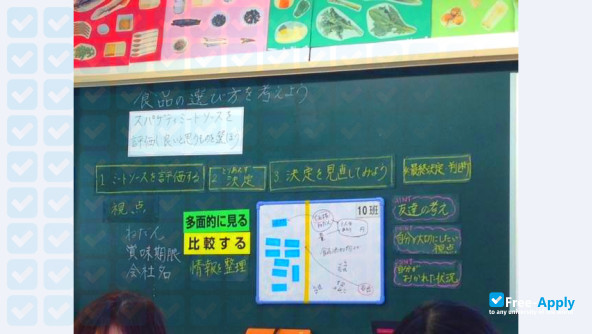 食品の選び方を考えよう
スパゲティミートソースを
評価し良いと思うものを選ぼう
1.ミートソースを評価する
2.とりあえず
決定
3.決定を見直してみよう
4.最終決定
視点
ねだん
賞味期限
会社名
多面的に見る
比較する
情報を整理
10班
友達の考え
自分が大切にしたい
視点
自分が
おかれた状況
Free Apply
to any university